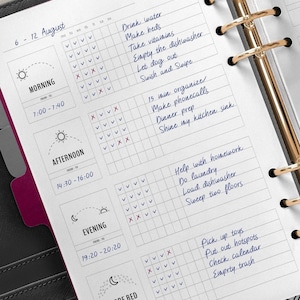 6 - 12 August
Drink water
Make beds
Take vitamins
Empty the dishwasher
Let dog out
Swish and Swipe
MORNING
7:00 - 7:40
15 min organizer
Make phonecalls
Dinner prep
Shine my kitchen sink
AFTERNOON
14:30 - 16:00
Help with homework
Do laundry
Load dishwasher
Sweep two floors
EVENING
19:20 - 20:20
Pick up toys
Put out hotspots
Check calendar
Empty trash
BED